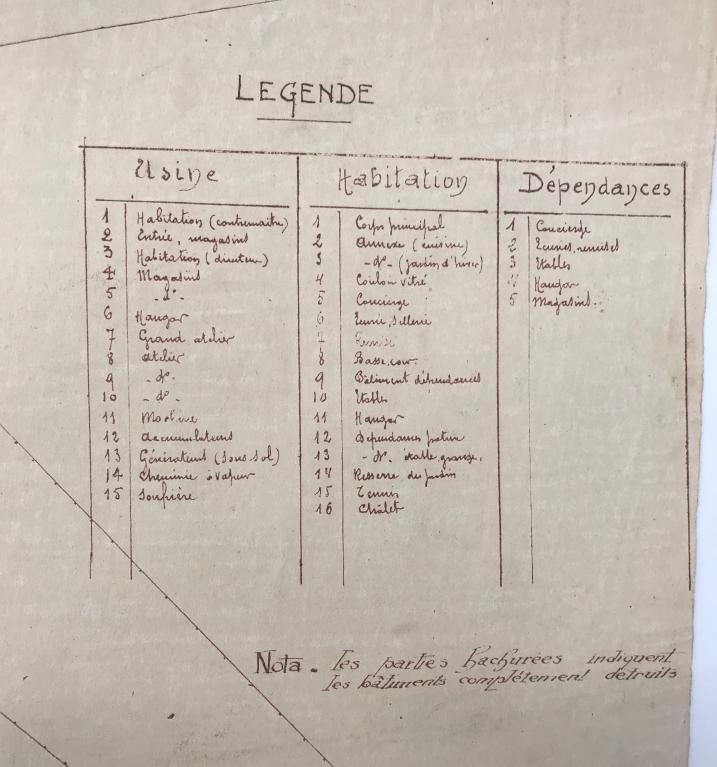 LEGENDE
Usine
1 Habitation (contremaitre)
2 Entrée, magasins
3 Habitation (directeur)
4 Magasins
5 - d° -
6 Hangar
7 Grand atelier
8 atelier
9 - d° -
10 - d° -
11 Machine
12 accumulateurs
13 Générateurs (sous-sol)
14 Cheminée à vapeur
15
Habitation
1 Corps principal
2 Annexe (cuisine)
3 - d° - (jardin d'hiver)
4 Couloir vitré
5 Concierge
6 Ecurie, Sellerie
7 Remise
8 Basse, cour.
9 Bâtiment dépendances
10 Etables
11 Hangar
12 Dépendances
13 - d° - étable, grange,
14 Resserre du jardin
15 Tennis
16 Châlet
Dépendances
1 Concierge
2 Ecuries, remises
3 Etables
4 Hangar
5 Magasins.
Nota - Les parties hachurées indiquent
les bâtiments complétement détruits